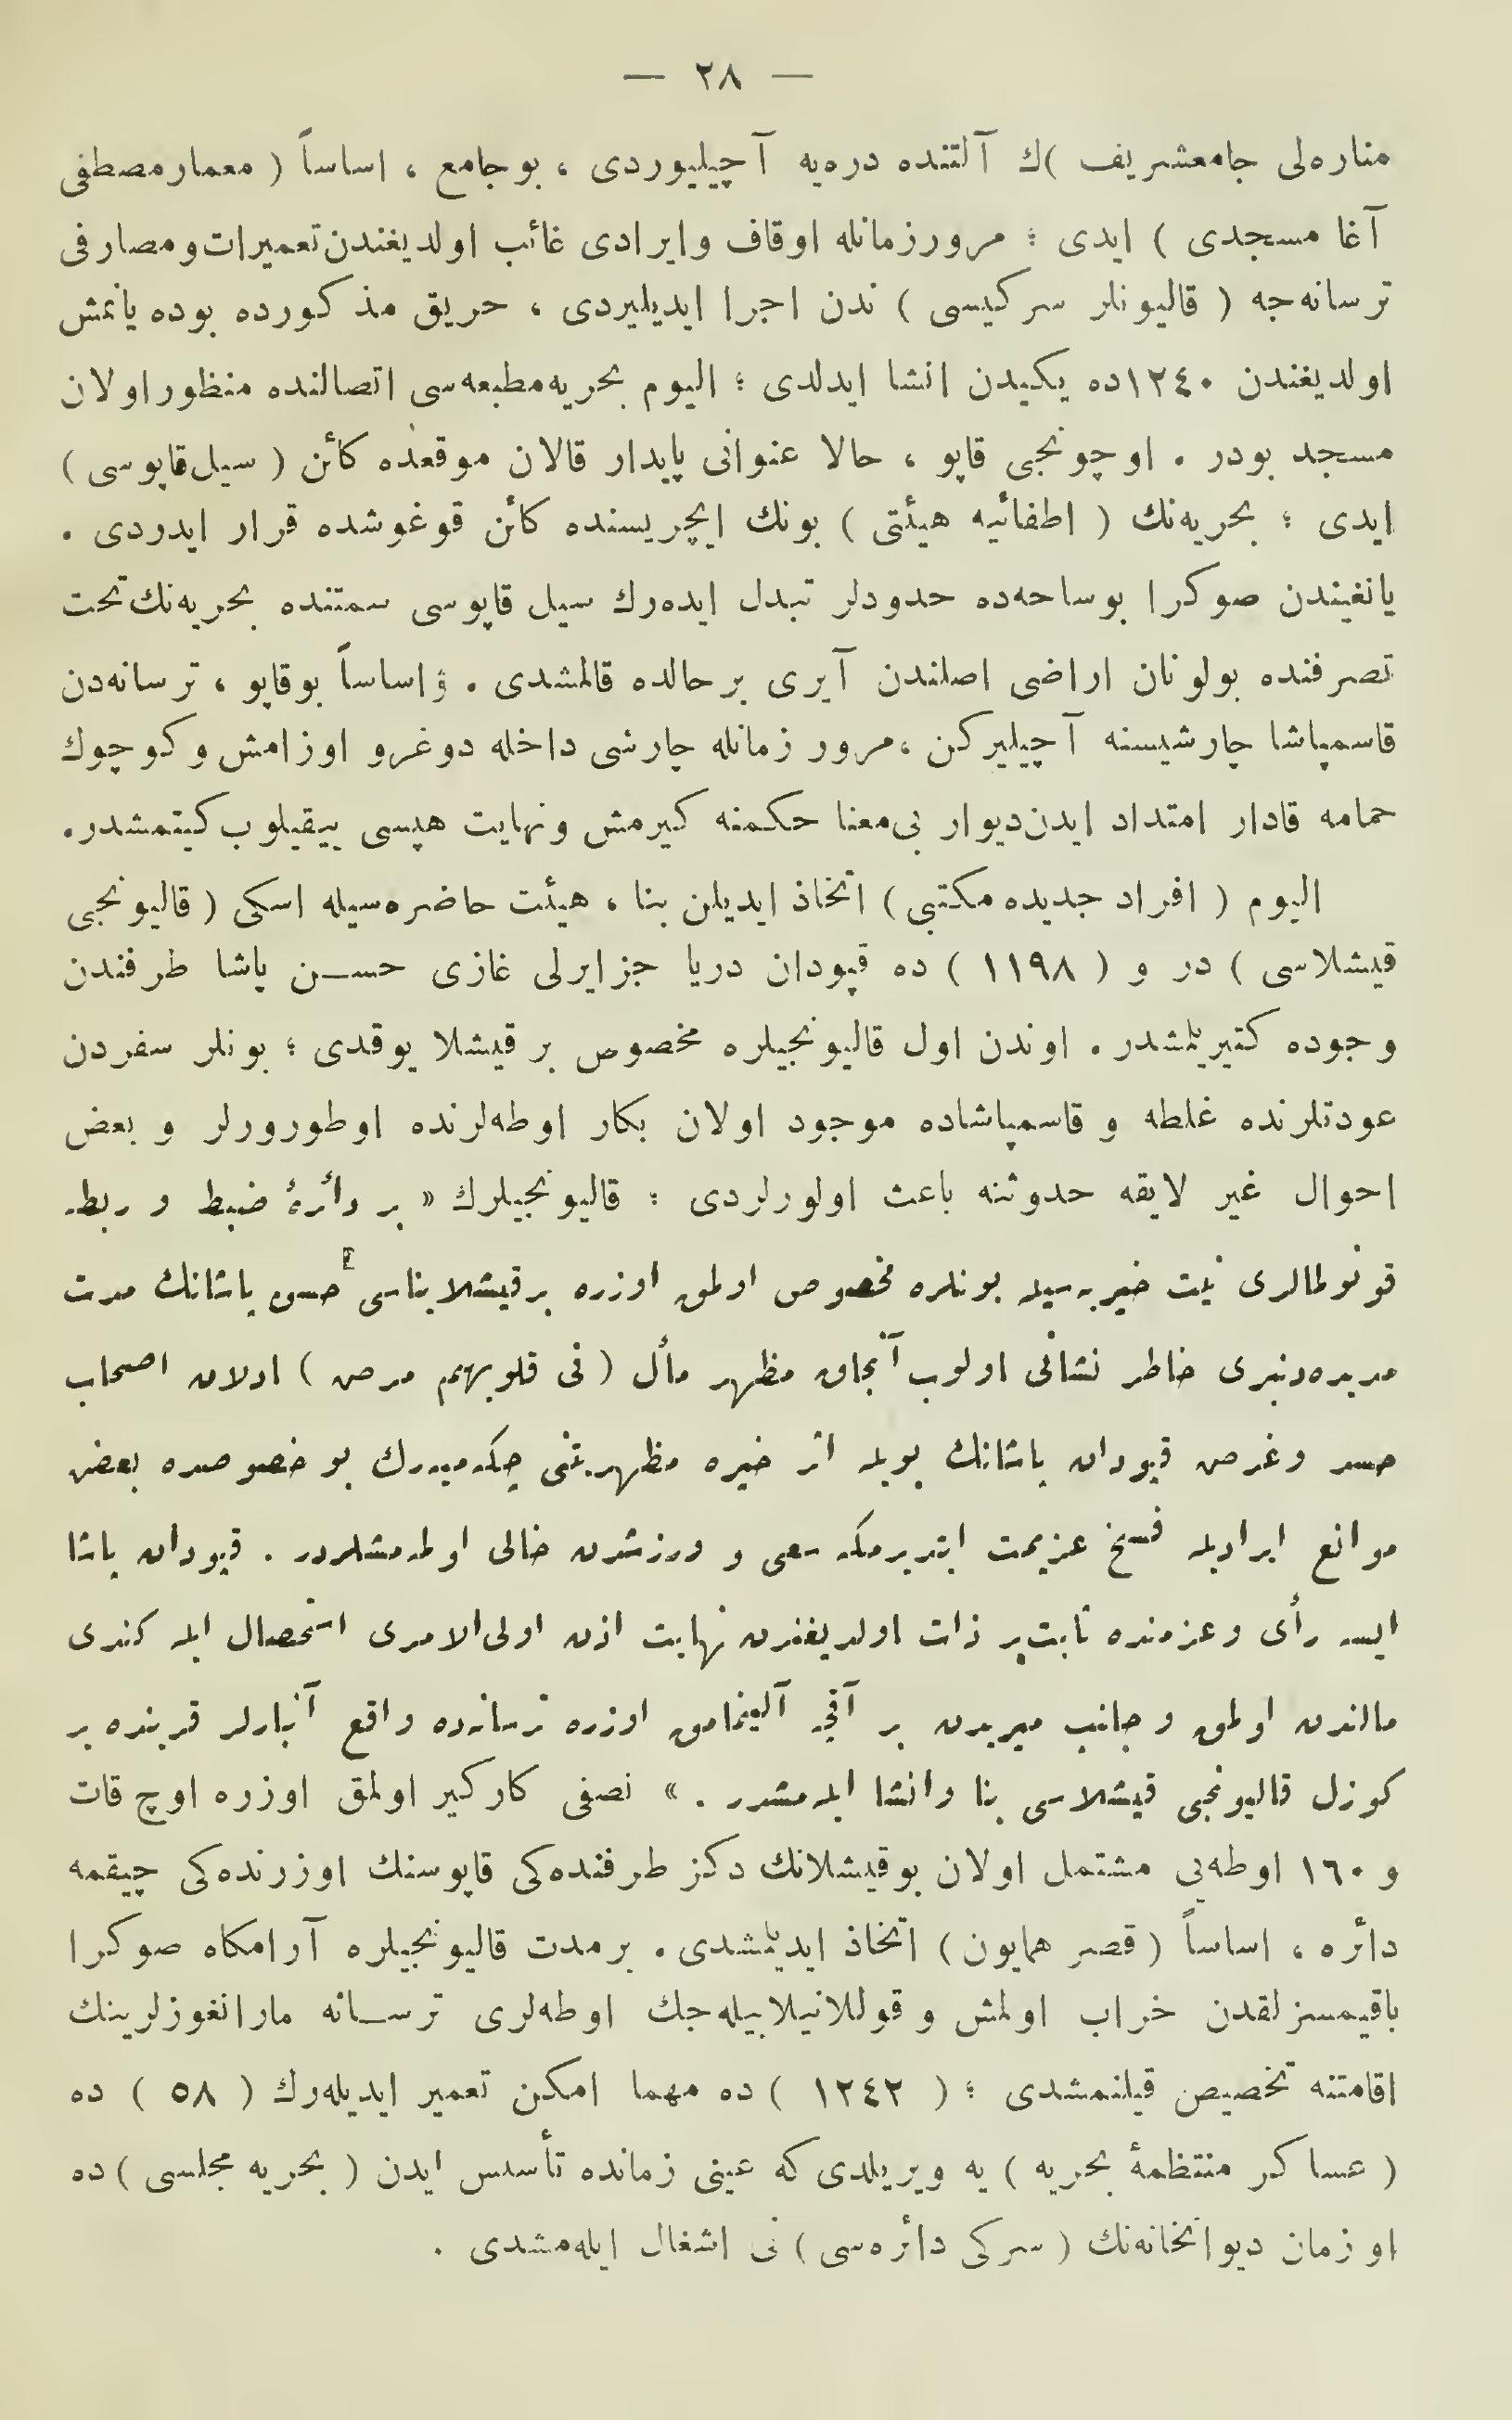 — ٢٨ —
مناره‌لى جامعشريف )ك آلتنده دره‌يه آچيليوردى ، بوجامع ، اساساً ( معمارمصطفى
آغا مسجدى ) ايدى ؛ مرورزمانله اوقاف وايرادى غائب اولديغندن تعميرات ومصارفى
ترسانه‌جه ( قاليونلر سركيسى ) ندن اجرا ايديليردى ، حريق مذكورده بوده يانمش
اولديغندن ١٢٤٠ده يكيدن انشا ايدلدى ؛ اليوم بحريه‌مطبعه‌سى اتصالنده منظوراولان
مسجد بودر . اوچونجى قاپو ، حالا عنوانى پايدار قالان موقعده كائن ( سيل‌قاپوسى )
ايدى ؛ بحريه‌نك ( اطفائيه هيئتى ) بونك ايچريسنده كائن قوغوشده قرار ايدردى .
يانغيندن صوكرا بوساحه‌ده حدودلر تبدل ايده‌رك سيل قاپوسى سمتنده بحريه‌نك تحت
تصرفنده بولونان اراضى اصلندن آيرى برحالده قالمشدى . اساساً بوقاپو ، ترسانه‌دن
قاسمپاشا چارشيسنه آچيليركن ،مرور زمانله چارشى داخله دوغرو اوزامش وكوچوك
حمامه قادار امتداد ايدن‌ديوار بى‌معنا حكمنه كيرمش ونهايت هپسى ييقيلوب كيتمشدر.
اليوم ( افراد جديده مكتبى ) اتخاذ ايديلن بنا ، هيئت حاضره‌سيله اسكى ( قاليونجى
قيشلاسى ) در و ( ١١٩٨ ) ده قپودان دريا جزايرلى غازى حسـن پاشا طرفندن
وجوده كتيريلمشدر . اوندن اول قاليونجيلره مخصوص بر قيشلا يوقدى ؛ بونلر سفردن
عودتلرنده غلطه و قاسمپاشاده موجود اولان بكار اوطه‌لرنده اوطورورلر و بعض
احوال غير لايقه حدوثنه باعث اولورلردى ؛ قاليونجيلرك « بر دائرۀ ضبط و ربطه
قونولمالرى نيت خيريه‌سيله بونلره مخصوص اولمق اوزره برقيشلا بناسى حسن پاشانك مدت
مديده‌دنبرى خاطر نشانى اولوب آنجاق مظهر مأل ( فى قلوبهم مرض ) اولان اصحاب
حسد وغرض قپودان پاشانك بويله اثر خيره مظهريتنى چكه‌ميه‌رك بو خصوصده بعض
موانع ايراديله فسخ عزيمت ايتديرمكه سعى و ورزشدن خالى اولمه‌مشلردر . قپودان پاشا
ايسه رأى وعزمنده ثابت‌بر ذات اولديغندن نهايت اذن اولى‌الامرى استحصال ايله كندى
مالندن اولمق وجانب ميريدن بر آقچه آلينمامق اوزره ترسانه‌ده واقع آنبارلر قربنده بر
كوزل قاليونجى قيشلاسى بنا وانشا ايله‌مشدر . » نصفى كاركير اولمق اوزره اوچ قات
و ١٦٠ اوطه‌يى مشتمل اولان بوقيشلانك دكز طرفنده‌كى قاپوسنك اوزرنده‌كى چيقمه
دائره ، اساساً ( قصر همايون ) اتخاذ ايديلمشدى . برمدت قاليونجيلره آرامكاه صوكرا
باقيمسزلقدن خراب اولمش و قوللانيلابيله‌جك اوطه‌لرى ترسـانه مارانغوزلرينك
اقامتنه تخصيص قيلنمشدى ؛ ( ١٢٤٢ ) ده مهما امكن تعمير ايديله‌رك ( ٥٨ ) ده
( عساكر منتظمۀ بحريه ) يه ويريلدى كه عينى زمانده تأسس ايدن ( بحريه مجلسى ) ده
او زمان ديوانخانه‌نك ( سركى دائره‌سى ) نى اشغال ايله‌مشدى .